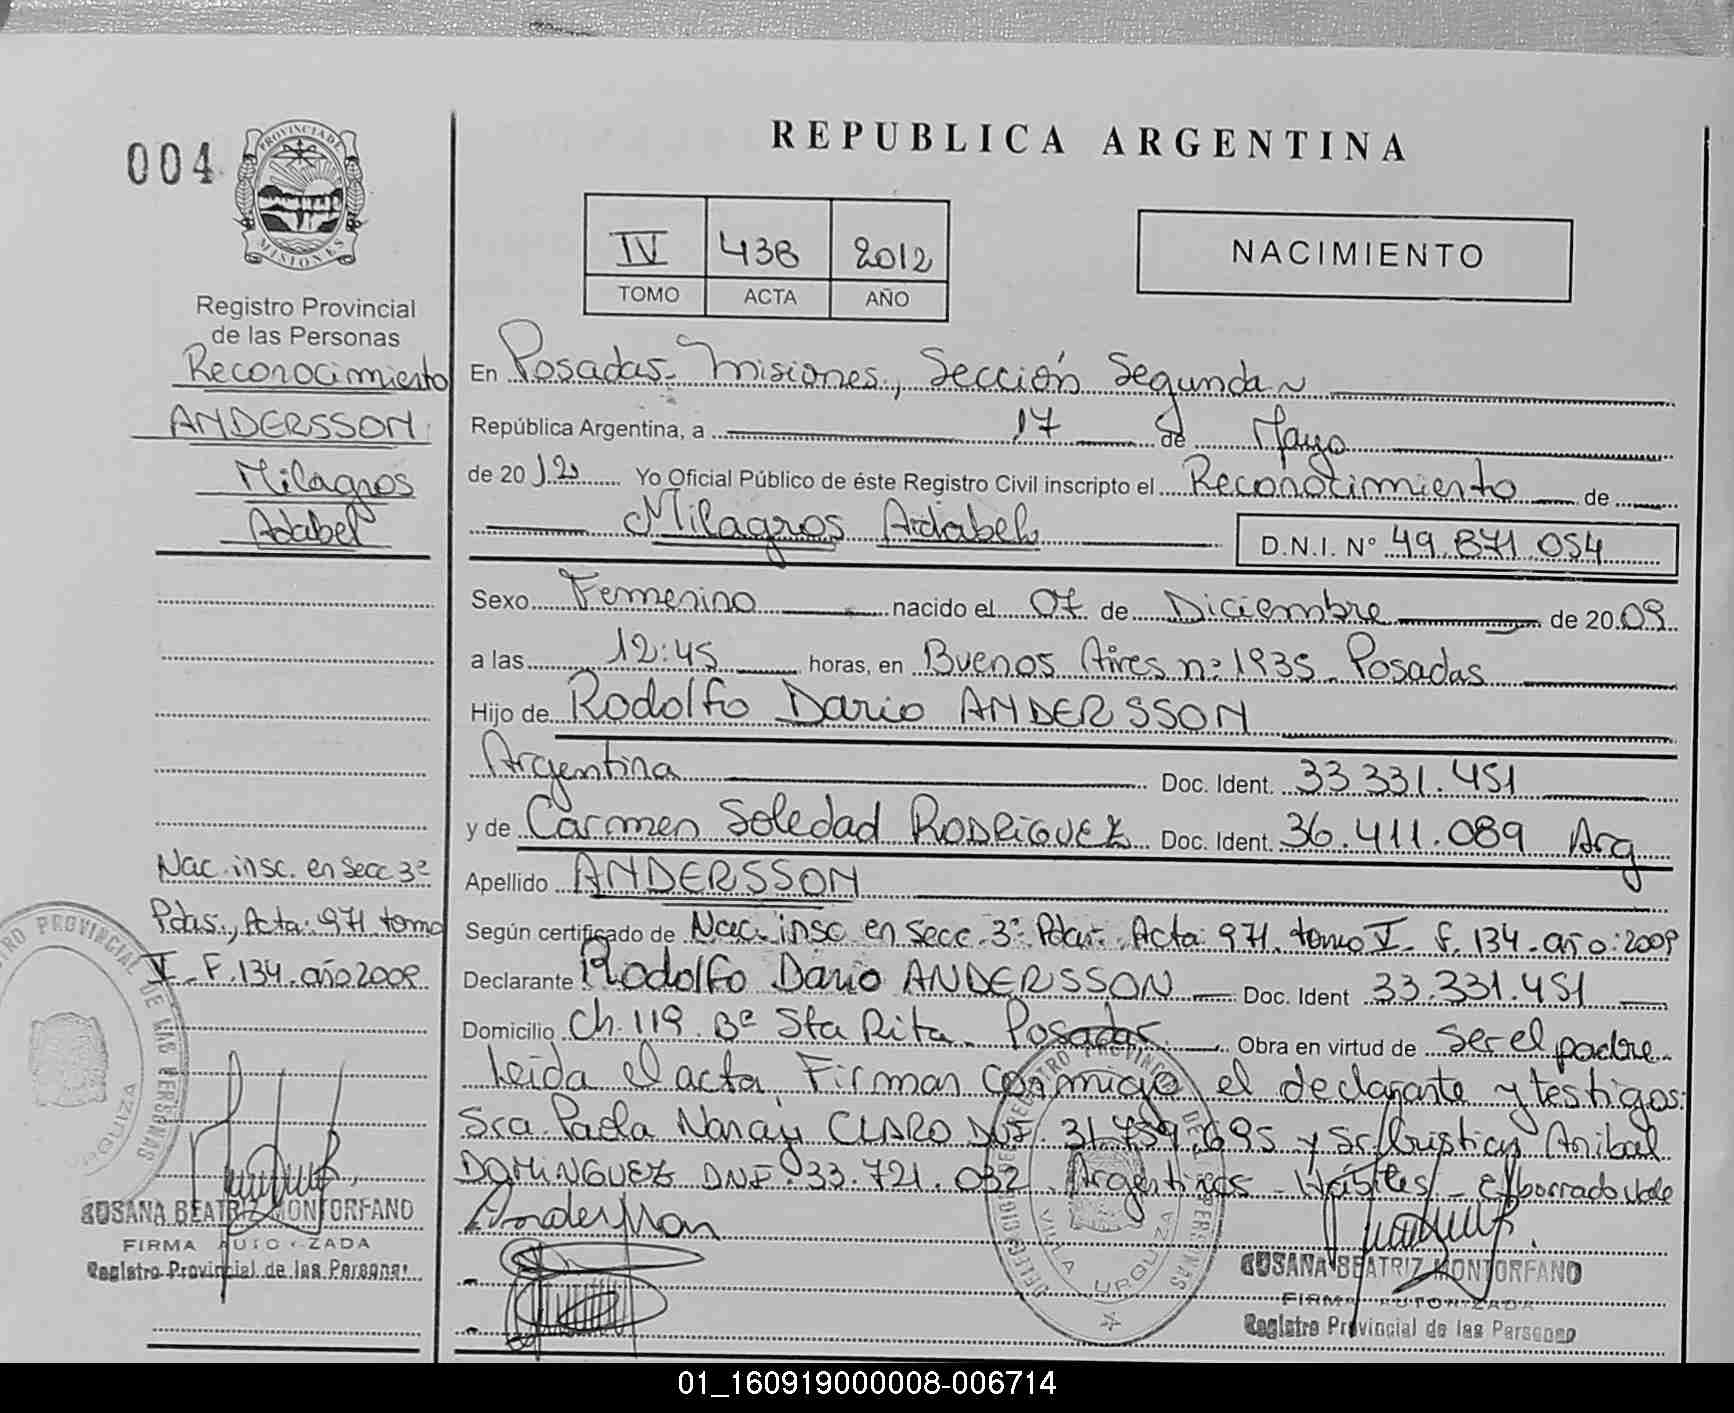 004
PROVINCIA DE
MISIONES
Registro Provincial
de las Personas
Reconocimiento
ANDERSSON
Milagros
Adabel
Nac. insc. en Secc 3ª
Pdas., Acta: 971 tomo
V. F. 134. año 2009
SUSANA BEATRIZ MONTORFANO
FIRMA AUTORIZADA
Registro Provincial de las Personas
REPUBLICA ARGENTINA
IV 438 2012
TOMO ACTA AÑO
NACIMIENTO
En Posadas - Misiones, Sección Segunda
República Argentina, a 17 de Mayo
de 2012 Yo Oficial Público de éste Registro Civil inscripto el Reconocimiento de
Milagros Adabel D.N.I. Nº 49.871.054
Sexo Femenino nacido el 07 de Diciembre de 2009
a las 12:45 horas, en Buenos Aires nº 1935 - Posadas
Hijo de Rodolfo Dario ANDERSSON
Argentina Doc. Ident. 33.331.451
y de Carmen Soledad RODRIGUEZ Doc. Ident. 36.411.089 Arg
Apellido ANDERSSON
Según certificado de Nac. insc en Secc. 3ª Pdas. Acta 971. tomo V. F. 134. año: 2009
Declarante Rodolfo Dario ANDERSSON Doc. Ident 33.331.451
Domicilio Ch. 119. Bº Sta Rita. Posadas Obra en virtud de ser el padre
Leida el acta Firman conmigo el declarante y testigos:
Sra. Paola CLARO DNI. 31.759.695 y Sr. Cristian Anibal
DOMINGUEZ DNI. 33.721.032 Argentinos - Hábiles - E/borrado Vale
Andersson
REGISTRO PROVINCIAL DE LAS PERSONAS
VILLA URQUIZA
SUSANA BEATRIZ MONTORFANO
FIRMA AUTORIZADA
Registro Provincial de las Personas
01_160919000008-006714